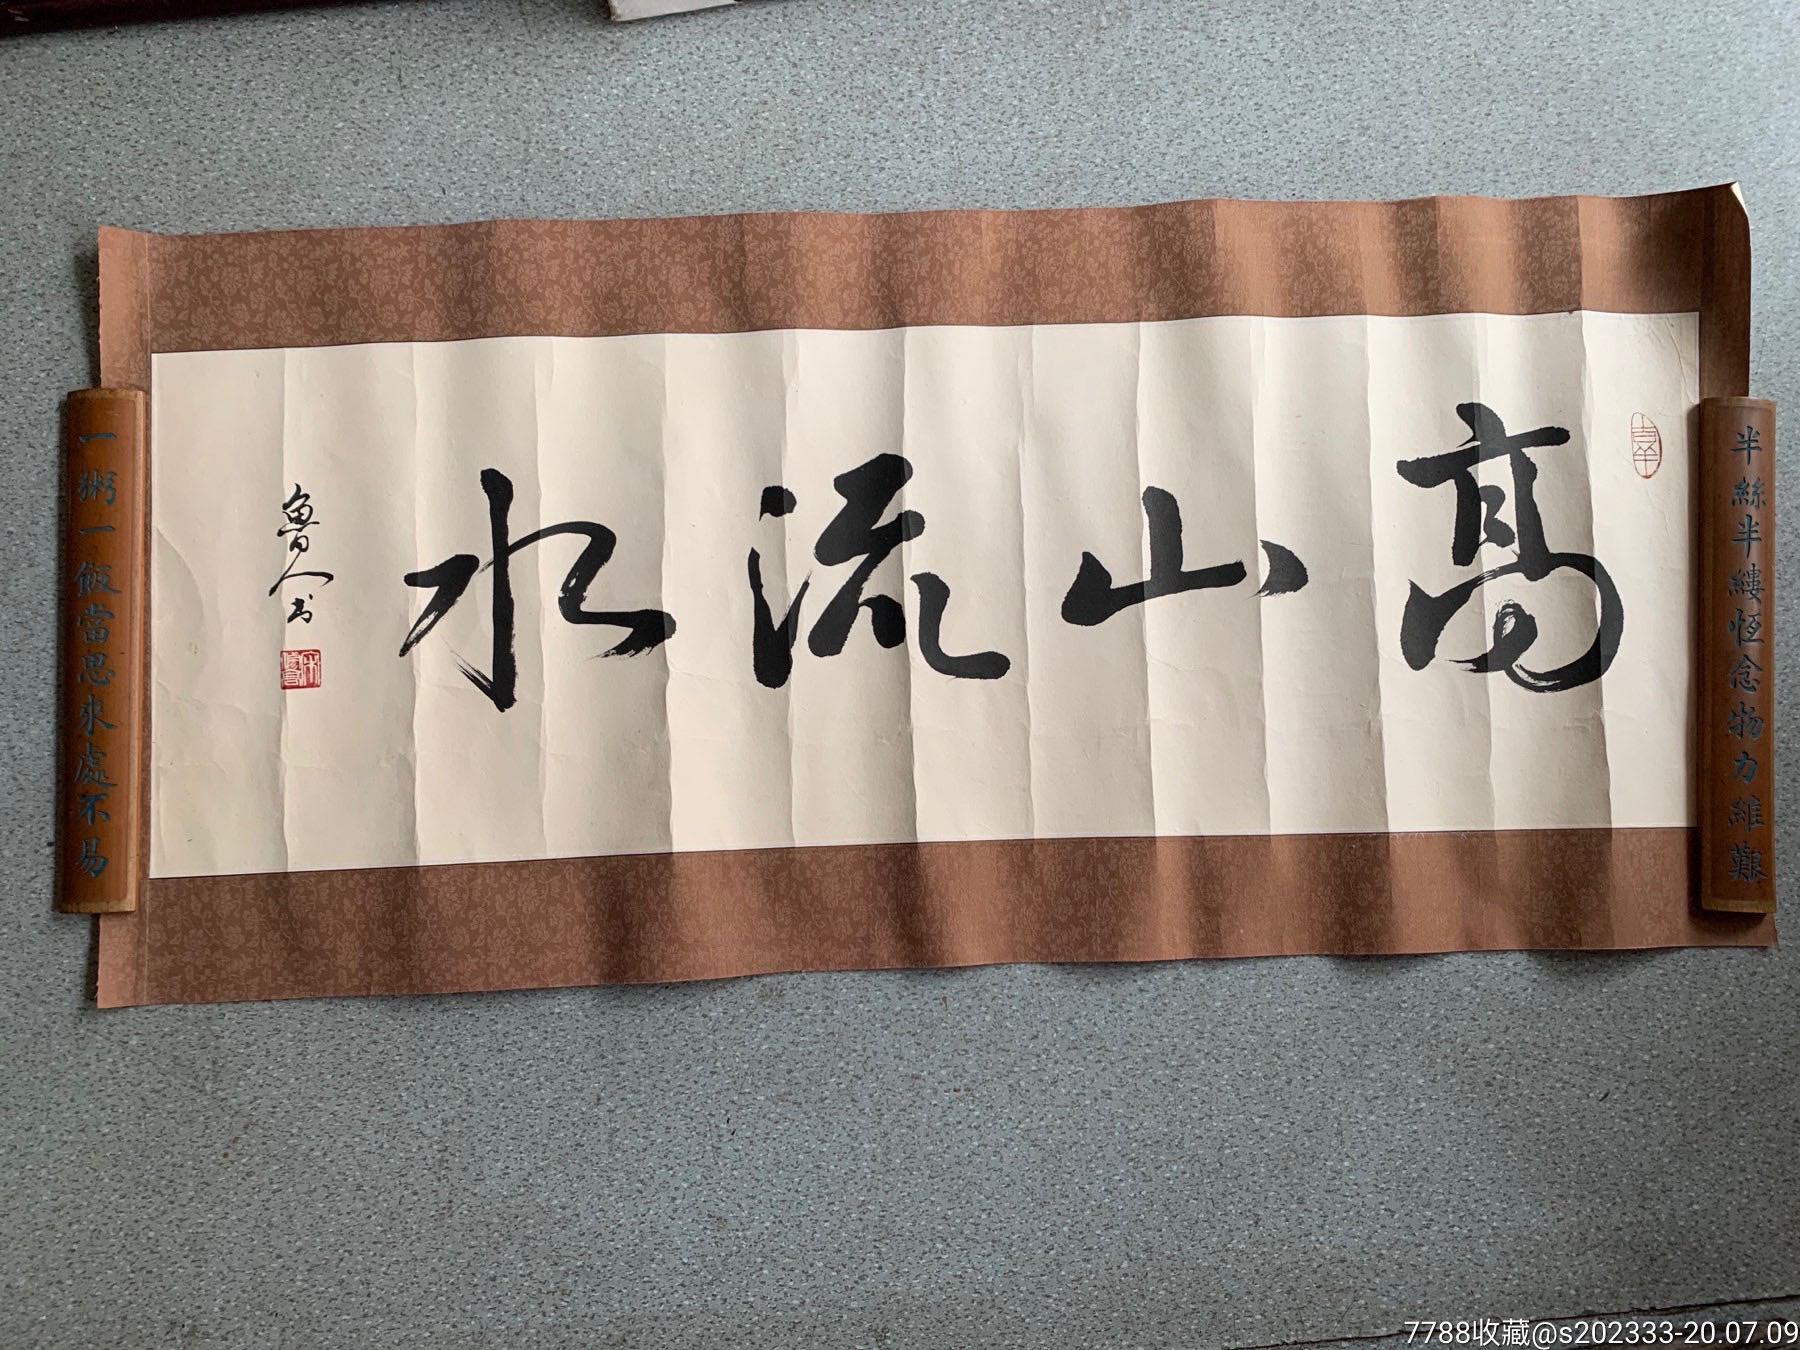 高山流水
魯人书
半絲半縷恆念物力維艱
一粥一飯當思來處不易
7788收藏@s202333-20.07.09